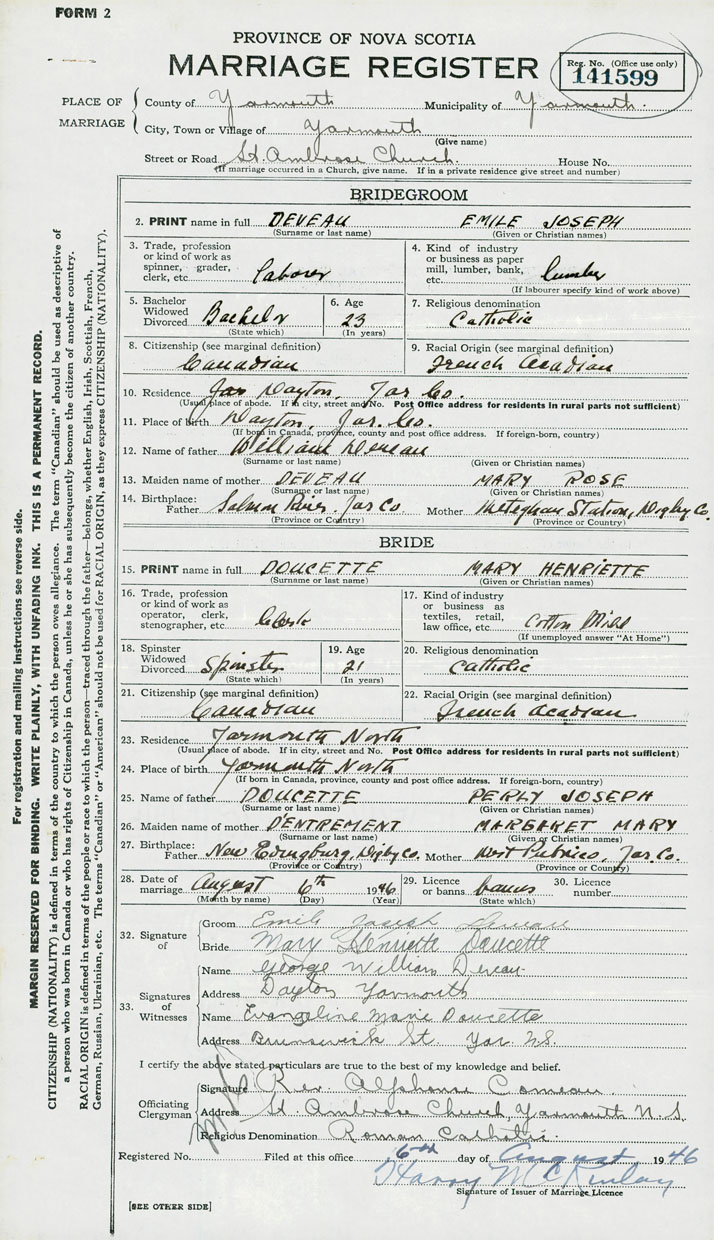 FORM 2
PROVINCE OF NOVA SCOTIA
MARRIAGE REGISTER
Reg. No. (Office use only)
141599
PLACE OF MARRIAGE
County of Yarmouth Municipality of Yarmouth.
City, Town or Village of Yarmouth
(Give name)
Street or Road St. Ambrose Church. House No.
(If marriage occurred in a Church, give name. If in a private residence give street and number)
BRIDEGROOM
2. PRINT name in full DEVEAU EMILE JOSEPH
(Surname or last name) (Given or Christian names)
3. Trade, profession or kind of work as spinner, grader, clerk, etc. laborer
4. Kind of industry or business as paper mill, lumber, bank, etc. lumber
(If labourer specify kind of work above)
5. Bachelor Widowed Divorced Bachelor
(State which)
6. Age 23
(In years)
7. Religious denomination
Catholic
8. Citizenship (see marginal definition)
Canadian
9. Racial Origin (see marginal definition)
French Acadian
10. Residence Dayton, Yar Co.
(Usual place of abode. If in city, street and No. Post Office address for residents in rural parts not sufficient)
11. Place of Birth Dayton, Yar. Co.
(If born in Canada, province, county and post office address. If foreign-born, country)
12. Name of father William Deveau
(Surname or last name) (Given or Christian names)
13. Maiden name of mother DEVEAU MARY ROSE
(Surname or last name) (Given or Christian names)
14. Birthplace:
Father Salmon River. Yar Co. Mother Meteghan Station, Digby Co.
(Province or Country) (Province or Country)
BRIDE
15. PRINT name in full DOUCETTE MARY HENRIETTE
(Surname or last name) (Given or Christian names)
16. Trade, profession or kind of work as operator, clerk, stenographer, etc. Clerk
17. Kind of industry or business as textiles, retail, law office, etc. Cotton Mill
(If unemployed answer "At Home")
18. Spinster Widowed Divorced Spinster
(State which)
19. Age 21
(In years)
20. Religious denomination
Catholic
21. Citizenship (see marginal definition)
Canadian
22. Racial Origin (see marginal definition)
French Acadian
23. Residence Yarmouth North
(Usual place of abode. If in city, street and No. Post Office address for residents in rural parts not sufficient)
24. Place of birth Yarmouth North
(If born in Canada, province, county and post office address. If foreign-born, country)
25. Name of father DOUCETTE PERLY JOSEPH
(Surname or last name) (Given or Christian names)
26. Maiden name of mother D'ENTREMENT MARGARET MARY
(Surname or last name) (Given or Christian names)
27. Birthplace:
Father New Edingburg, Digby Co. Mother West Pubnico, Yar. Co.
(Province or Country) (Province or Country)
28. Date of marriage August 6th 1946
(Month by name) (Day) (Year)
29. Licence or banns banns
(State which)
30. Licence number
32. Signature of
Groom Emile Joseph Deveau
Bride Mary Henriette Doucette
33. Signatures of Witnesses
Name George William Deveau
Address Dayton Yarmouth
Name Evangeline Marie Doucette
Address Brunswick St. Yar. N.S.
I certify the above stated particulars are true to the best of my knowledge and belief.
Officiating Clergyman
Signature Rev. Alphonse Comeau.
Address St. Ambrose Church, Yarmouth N.S.
Religious Denomination Roman Catholic.
Registered No. Filed at this office 6th day of August 1946
Harry McKinlay
Signature of Issuer of Marriage Licence
[SEE OTHER SIDE]
For registration and mailing instructions see reverse side.
MARGIN RESERVED FOR BINDING. WRITE PLAINLY, WITH UNFADING INK. THIS IS A PERMANENT RECORD.
CITIZENSHIP (NATIONALITY) is defined in terms of the country to which the person owes allegiance. The term "Canadian" should be used as descriptive of
a person who was born in Canada or who has rights of Citizenship in Canada, unless he or she has subsequently become the citizen of another country.
RACIAL ORIGIN is defined in terms of the people or race to which the person—traced through the father—belongs, whether English, Irish, Scottish, French,
German, Russian, Ukrainian, etc. The terms "Canadian" or "American" should not be used for RACIAL ORIGIN, as they express CITIZENSHIP (NATIONALITY).